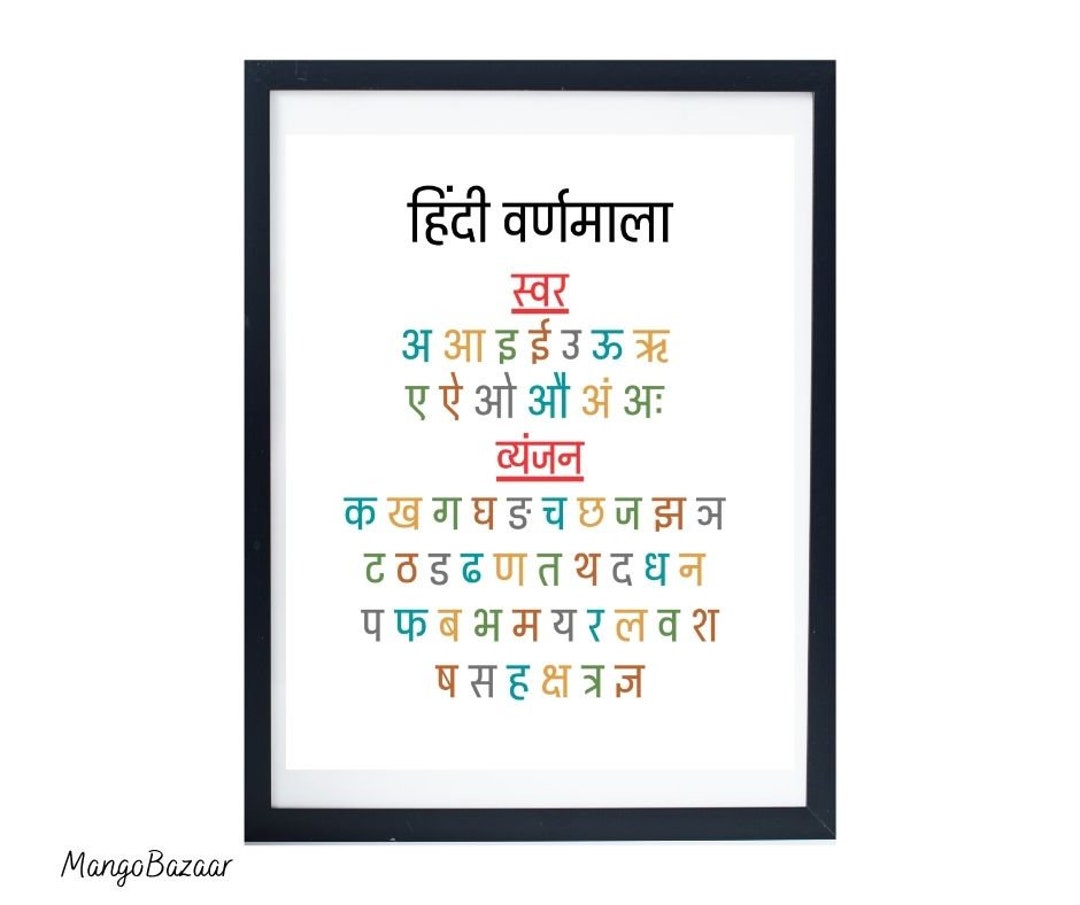 हिंदी वर्णमाला
स्वर
अ आ इ ई उ ऊ ऋ
ए ऐ ओ औ अं अः
व्यंजन
क ख ग घ ङ च छ ज झ ञ
ट ठ ड ढ ण त थ द ध न
प फ ब भ म य र ल व श
ष स ह क्ष त्र ज्ञ
MangoBazaar